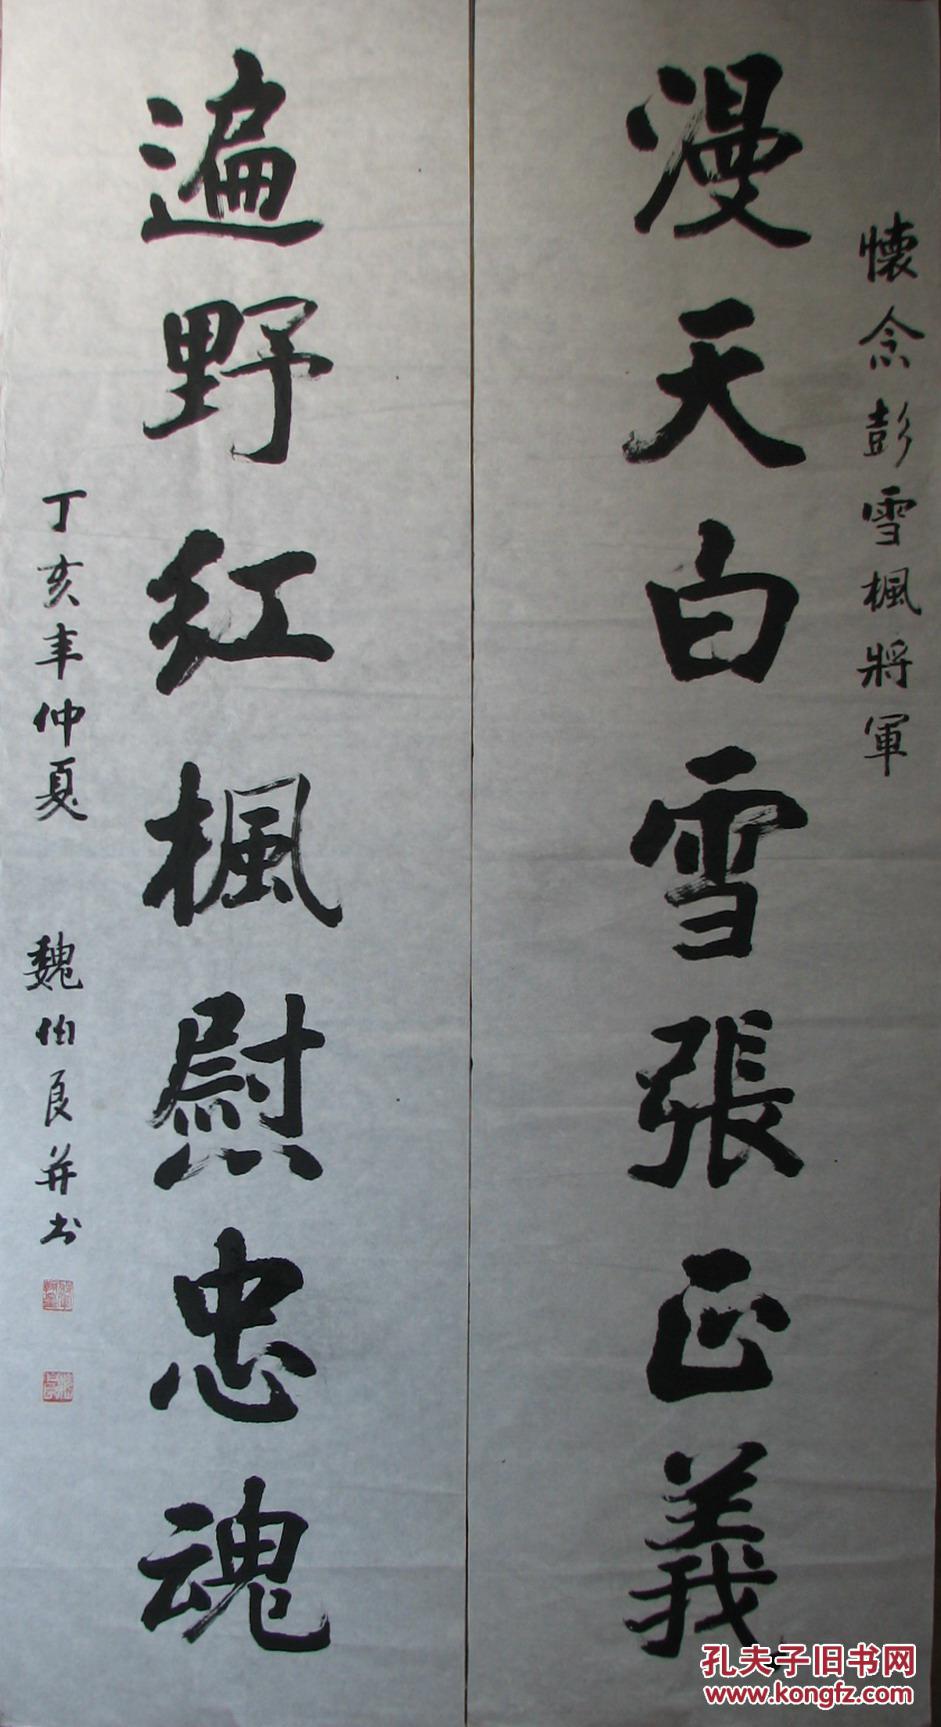 懷念彭雪楓將軍
漫天白雪張正義
遍野紅楓慰忠魂
丁亥年仲夏 魏伯良并书
孔夫子旧书网
www.kongfz.com